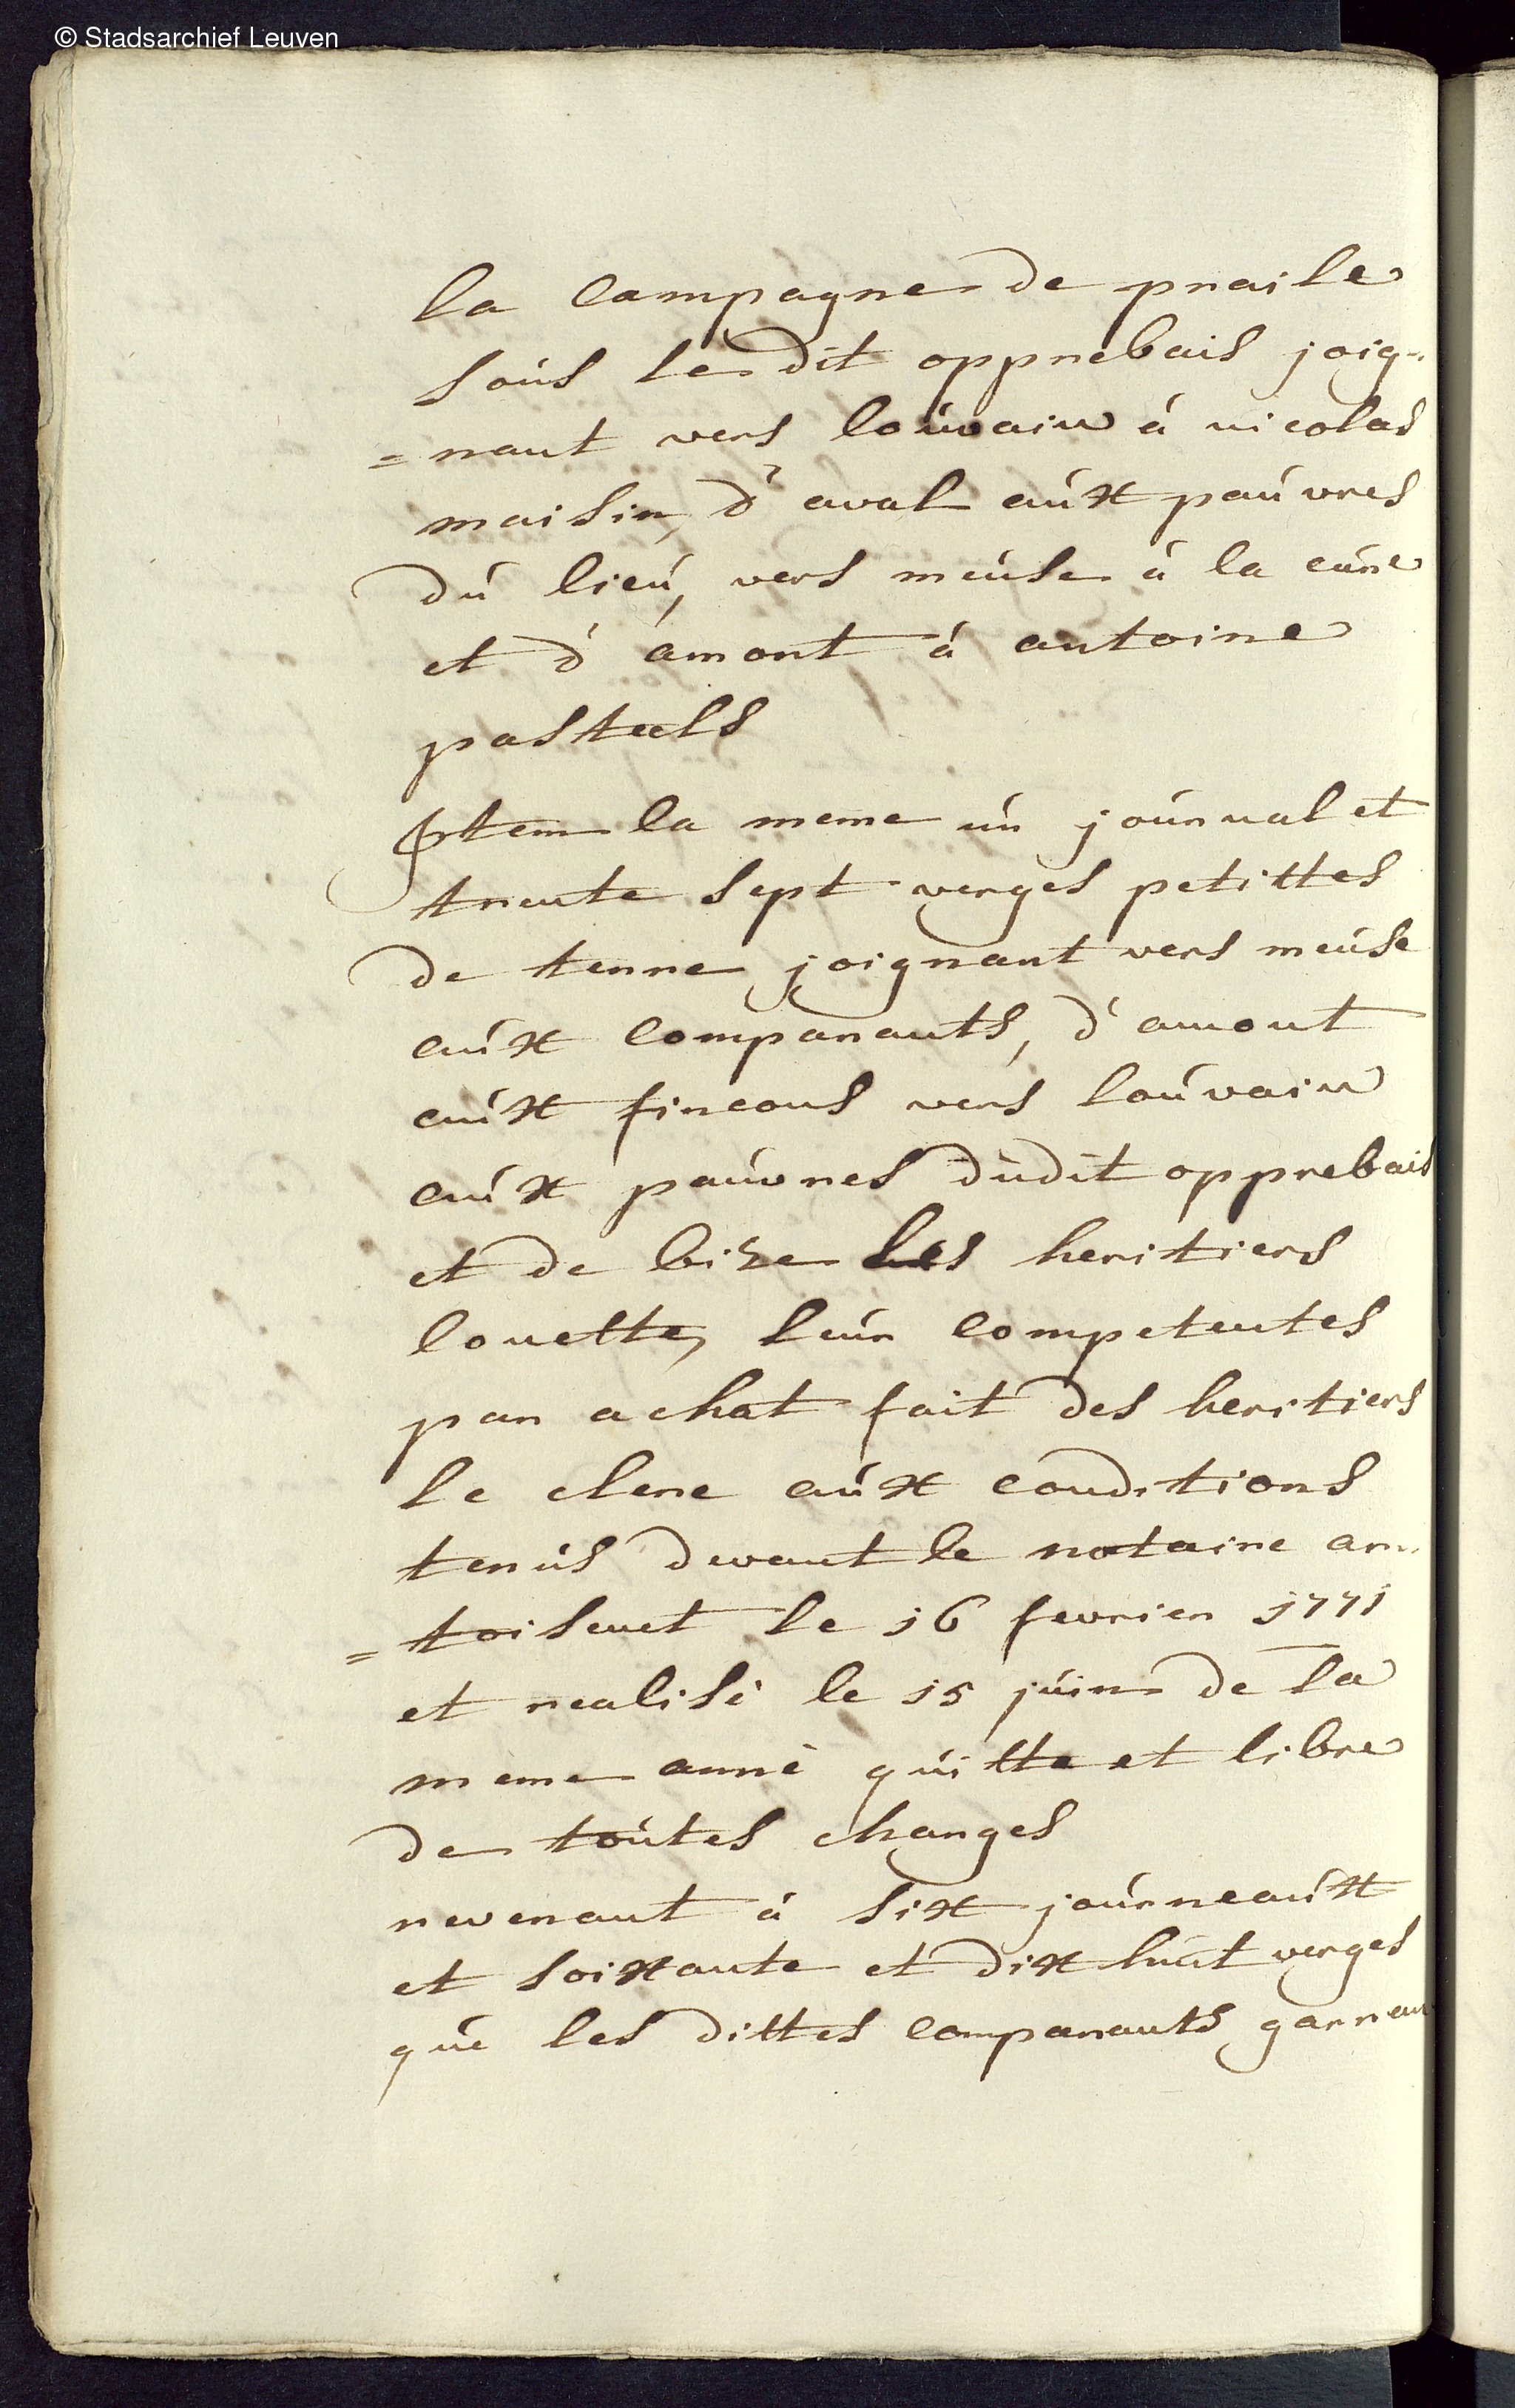 © Stadsarchief Leuven
la campagne de praile
sous le dit opprebais joig-
=nant vers louvain à nicolas
maisin, d'aval aúx paúvres
dú lieú, vers meúse à la cúre
et d'amont à antoine
pasteels
Jtem la meme ún joúrnal et
trente sept verges petittes
de terre joignant vers meúse
aúx comparants, d'amont
aúx fincons vers loúvain
aúx paúvres dúdit opprebais
et de bize les heritiers
louette, leúr competentes
par achat fait des heritiers
le clerc aúx conditions
tenús devant le notaire ar-
=toisenet le 16 fevrier 1771
et realisé le 15 júin de la
meme anné qúitte et libre
de toútes charges
revenant à six joúrneaúx
et soixante et dix húit verges
qúe les dittes comparants